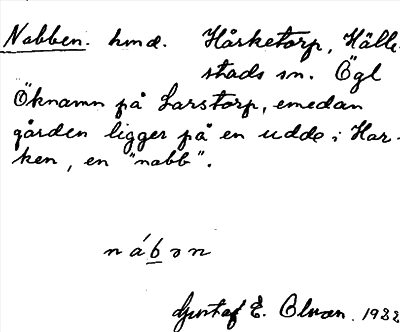 Nabben. hmd. Hårketorp, Hälle-
stads sn. Ögl
Öknamn på Larstorp, emedan
gården ligger på en udde i Har-
ken, en "nabb".
nábən
Gustaf E. Olson. 1932